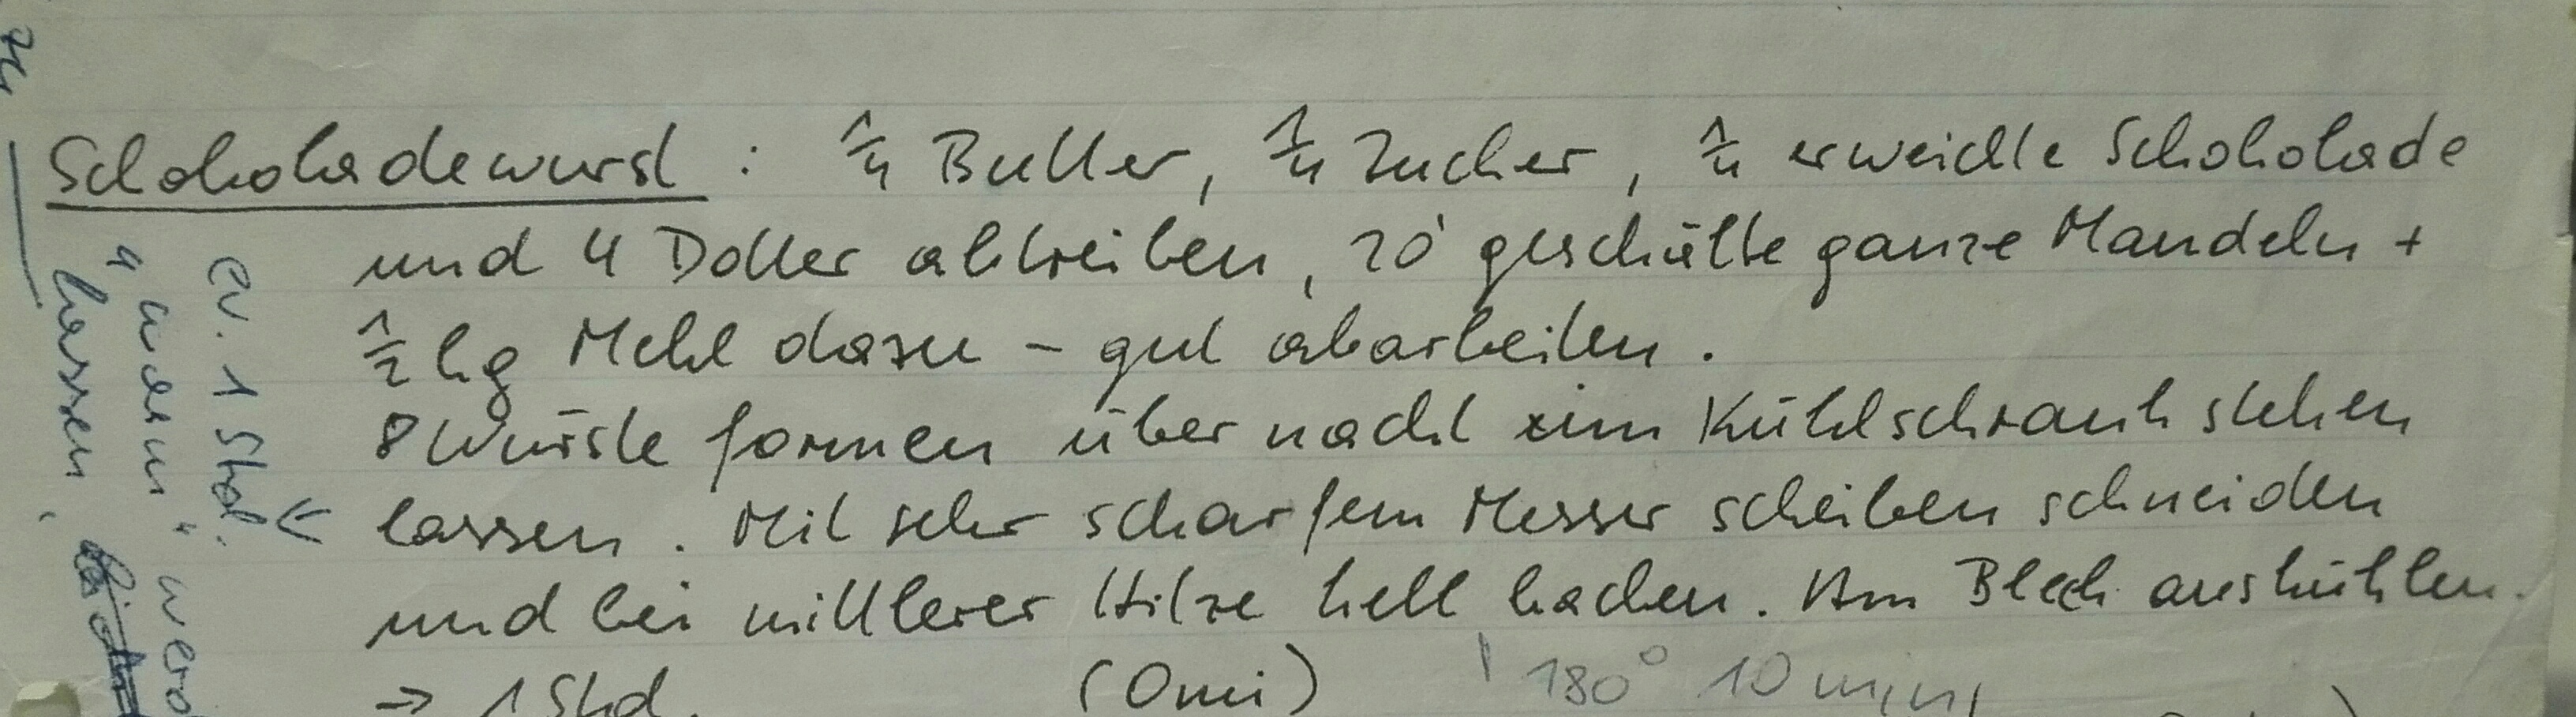 Schokoladewurst : 1/4 Butter, 1/4 Zucker, 1/4 erweichte Schokolade
und 4 Dotter abtreiben, 20 geschälte ganze Mandeln +
1/2 kg Mehl dazu - gut abarbeiten.
8 Würste formen über nacht im Kühlschrank stehen
lassen. Mit sehr scharfem Messer scheiben schneiden
und bei mittlerer Hitze hell backen. Am Blech auskühlen.
→ 1 Std. (Omi) 180° 10 min
ev. 1 Std.
"warm" werd
lassen,